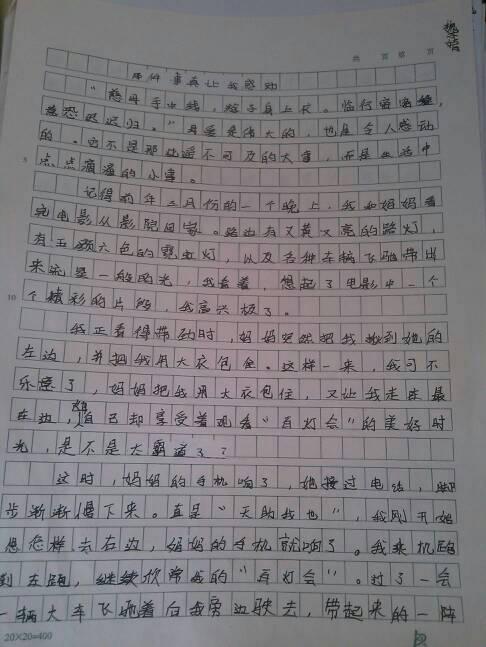 共 页 第 页
那件事真让我感动
“慈母手中线,游子身上衣。临行密密缝,
意恐迟迟归。”母爱是伟大的,也是令人感动
的。它不是那些遥不可及的大事,而是生活中
5
点点滴滴的小事。
记得前年三月份的一个晚上,我和妈妈看
完电影从影院回家。路边有又黄又亮的路灯,
有五颜六色的霓虹灯,以及各种车辆飞驰带出
来流星一般的光,我看着,想起了电影中一个
10
个精彩的片段,我高兴极了。
我正看得带劲时,妈妈突然把我揪到她的
左边,并把我用大衣包住。这样一来,我可不
乐意了,妈妈把我用大衣包住,又让我走在最
左边,自己却享受着观看“百灯会”的美好时
光,是不是太霸道了?
这时,妈妈的手机响了,她接过电话,脚
步渐渐慢下来。真是“天助我也”,我刚开始
想怎样去右边,妈妈的手机就响了。我乘机跑
到右跑,继续欣赏我的“百灯会”。过了一会
一辆大车飞驰着向我旁边驶去,带起来的一阵
20×20=400